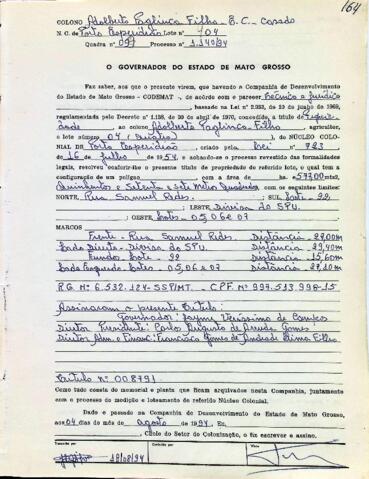 164
COLONO Adalberto Paglinca Filho - B.C. - Casado
N. C. de Porto Esperidião Lote n° 04
Quadra n° 097 Processo n° 1.140/94
O GOVERNADOR DO ESTADO DE MATO GROSSO
Faz saber, aos que o presente virem, que havendo a Companhia de Desenvolvimento
do Estado de Mato Grosso - CODEMAT -, de acôrdo com o parecer Técnico e Jurídico
, baseado na Lei n° 2.293, de 10 de junho de 1969,
regulamentada pelo Decreto n° 1.138, de 29 de abril de 1970, concedido, a título de
dade, ao colono Adalberto Paglinca Filho, agricultor,
o lote número 04 (quatro), do NÚCLEO COLO-
NIAL DE Porto Esperidião, criado pela Lei n° 723
de 16 de julho de 1954, e achando-se o processo revestido das formalidades
legais, resolveu conferir-lhe o presente título de propriedade do referido lote, o qual tem a
configuração de um polígono com a área de ha. 577,00 mts2,
Quinhentos e Setenta e Sete Metros Quadrados, com os seguintes limites:
NORTE, Rua Samuel Rides. ; SUL, Lote - 22,
; LESTE, Divisa do SPU.
; OESTE, Lotes - 05, 06 e 07
MARCOS
Frente - Rua Samuel Rides. Distância - 27,00m
Lado Direito - Divisa do SPU. Distância - 29,40m
Fundos - Lote - 22 Distância - 15,60m
Lado Esquerdo - Lotes - 05, 06 e 07 Distância - 27,10m
R.G. N° 6.532.124-SSP/MT. - C.P.F. N° 997.513.998-15
Assinaram o presente título:
Governador: Jayme Veríssimo de Campos
Diretor Presidente: Carlos Augusto de Arruda Gomes
Diretor Adm. e Financ: Francisco Gomes de Andrade Lima Filho
Título N° 008791
Como tudo consta do memorial e planta que ficam arquivados nesta Companhia, juntamente
com o processo de medição e loteamento do referido Núcleo Colonial.
Dado e passado na Companhia de Desenvolvimento do Estado de Mato Grosso,
aos 04 dias do mês de agosto de 1994, Eu,
, Chefe do Setor de Colonização, o fiz escrever e assino.
18/08/94
Visto